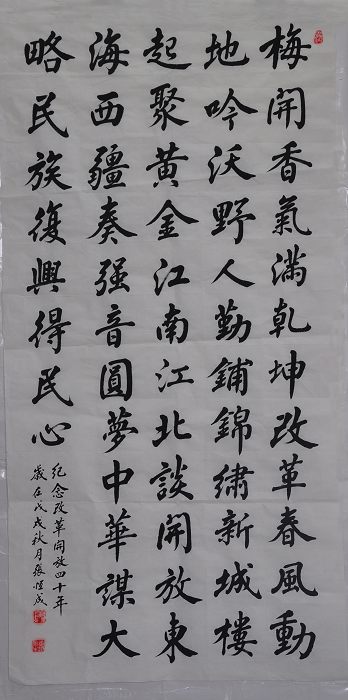 梅開香氣滿乾坤改革春風動
地吟沃野人勤鋪錦繡新城樓
起聚黄金江南江北談開放東
海西疆奏强音圓夢中華謀大
略民族復興得民心
紀念改革開放四十年
歲在戊戌秋月張恒成